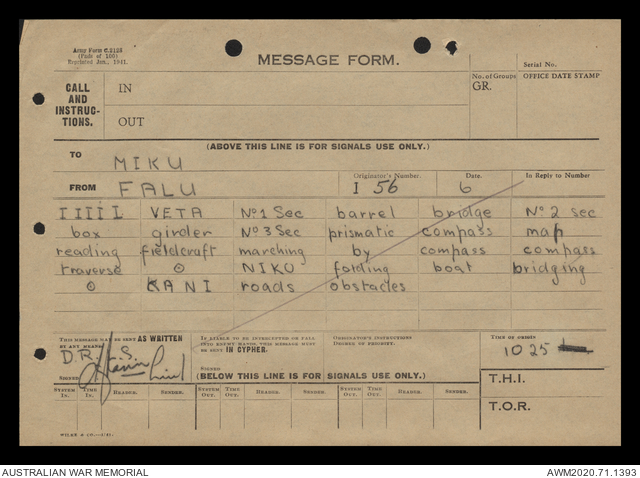 Army Form C.2128
(Pads of 100)
Reprinted Jan., 1941.
MESSAGE FORM.
Serial No.
CALL AND INSTRUC-TIONS.
IN
OUT
No. of Groups
GR.
OFFICE DATE STAMP
(ABOVE THIS LINE IS FOR SIGNALS USE ONLY.)
TO MIKU
FROM FALU
Originator's Number.
I 56
Date.
6
In Reply to Number
IIIIL VETA No 1 Sec barrel bridge No 2 sec
box girder No 3 Sec prismatic compass map
reading fieldcraft marching by compass compass
traverse ⊙ NIKU folding boat bridging
⊙ KANI roads obstacles
THIS MESSAGE MAY BE SENT AS WRITTEN
BY ANY MEANS
D.R.L.S.
SIGNED
IF LIABLE TO BE INTERCEPTED OR FALL
INTO ENEMY HANDS, THIS MESSAGE MUST
BE SENT IN CYPHER.
SIGNED
ORIGINATOR'S INSTRUCTIONS
DEGREE OF PRIORITY.
TIME OF ORIGIN
1025
(BELOW THIS LINE IS FOR SIGNALS USE ONLY.)
SYSTEM IN. TIME IN. READER. SENDER. SYSTEM OUT. TIME OUT. READER. SENDER. SYSTEM OUT. TIME OUT. READER. SENDER.
T.H.I.
T.O.R.
AUSTRALIAN WAR MEMORIAL
AWM2020.71.1393